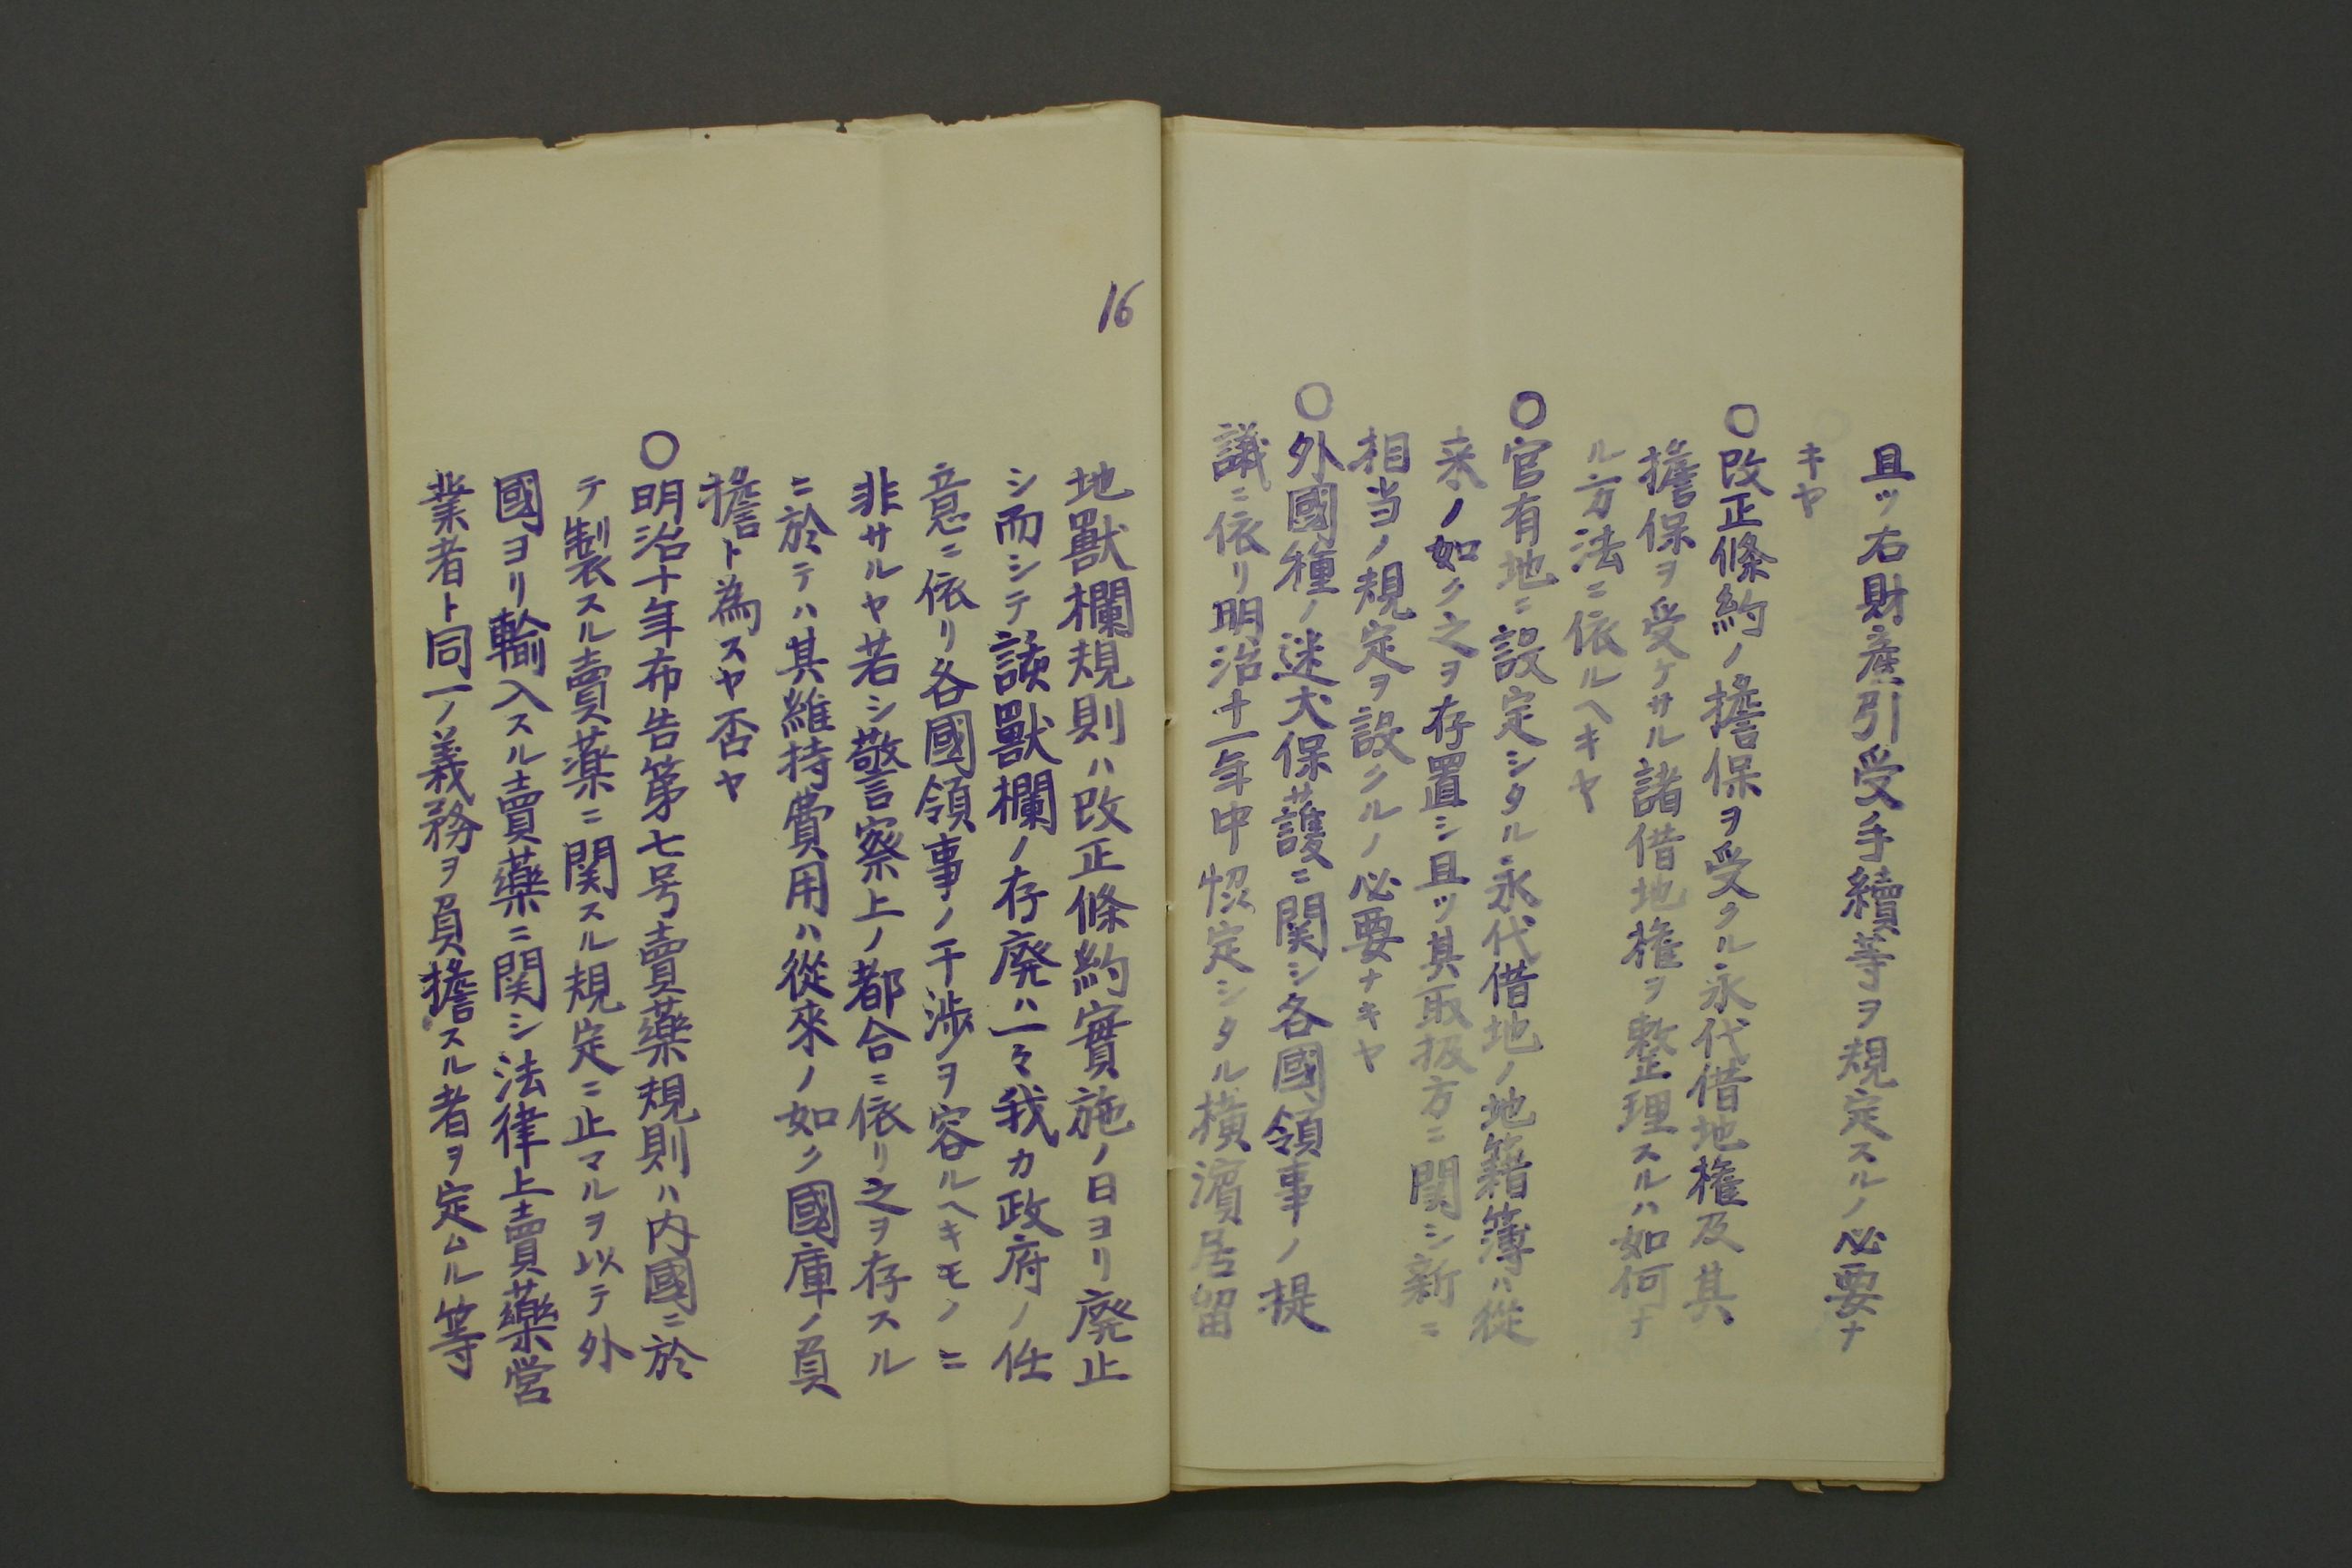 且ツ右財産引受手續等ヲ規定スルノ必要ナ
キヤ
〇改正條約ノ擔保ヲ受クル永代借地權及其
擔保ヲ受ケサル諸借地權ヲ整理スルハ如何ナ
ル方法ニ依ルヘキヤ
〇官有地ニ設定シタル永代借地ノ地籍簿ハ從
来ノ如ク之ヲ存置シ且ツ其取扱方ニ関シ新ニ
相当ノ規定ヲ設クルノ必要ナキヤ
〇外國種ノ迷犬保護ニ関シ各國領事ノ提
議ニ依リ明治十一年中惣定シタル横濱居留
16
地獸欄規則ハ改正條約實施ノ日ヨリ廃止
シ而シテ該獸欄ノ存廃ハ一々我カ政府ノ任
意ニ依リ各國領事ノ干渉ヲ容ルヘキモノニ
非サルヤ若シ警察上ノ都合ニ依リ之ヲ存スル
ニ於テハ其維持費用ハ從來ノ如ク國庫ノ負
擔ト為スヤ否ヤ
〇明治十年布告第七号賣藥規則ハ内國ニ於
テ製スル賣薬ニ関スル規定ニ止マルヲ以テ外
國ヨリ輸入スル賣藥ニ関シ法律上賣藥営
業者ト同一ノ義務ヲ負擔スル者ヲ定ムル等